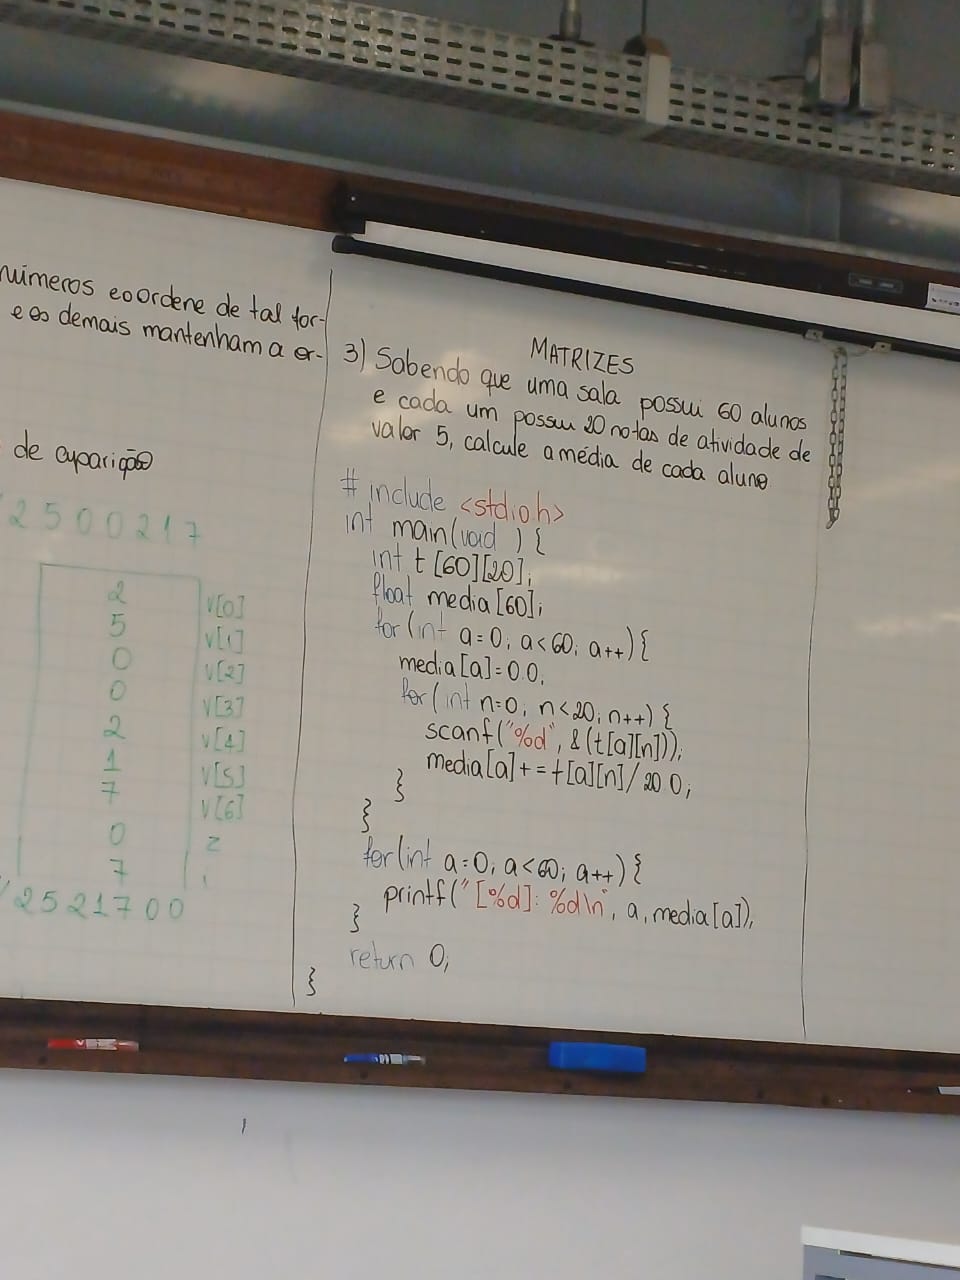 números e o ordene de tal for-
e os demais mantenham a or-
de aparição
2500217
2
5
0
0
2
1
7
0
7
V[0]
V[1]
V[2]
V[3]
V[4]
V[5]
V[6]
2521700
MATRIZES
3) Sabendo que uma sala possui 60 alunos
e cada um possui 20 notas de atividade de
valor 5, calcule a média de cada aluno
# include <stdio.h>
int main(void ) {
int t[60][20];
float media[60];
for(int a=0; a<60; a++){
media[a]=0.0;
for(int n=0; n<20; n++) {
scanf("%d", &(t[a][n]));
media[a]+=t[a][n]/20.0;
}
}
for(int a=0; a<60; a++){
printf("[%d]: %d\n", a, media[a]);
}
return 0;
}